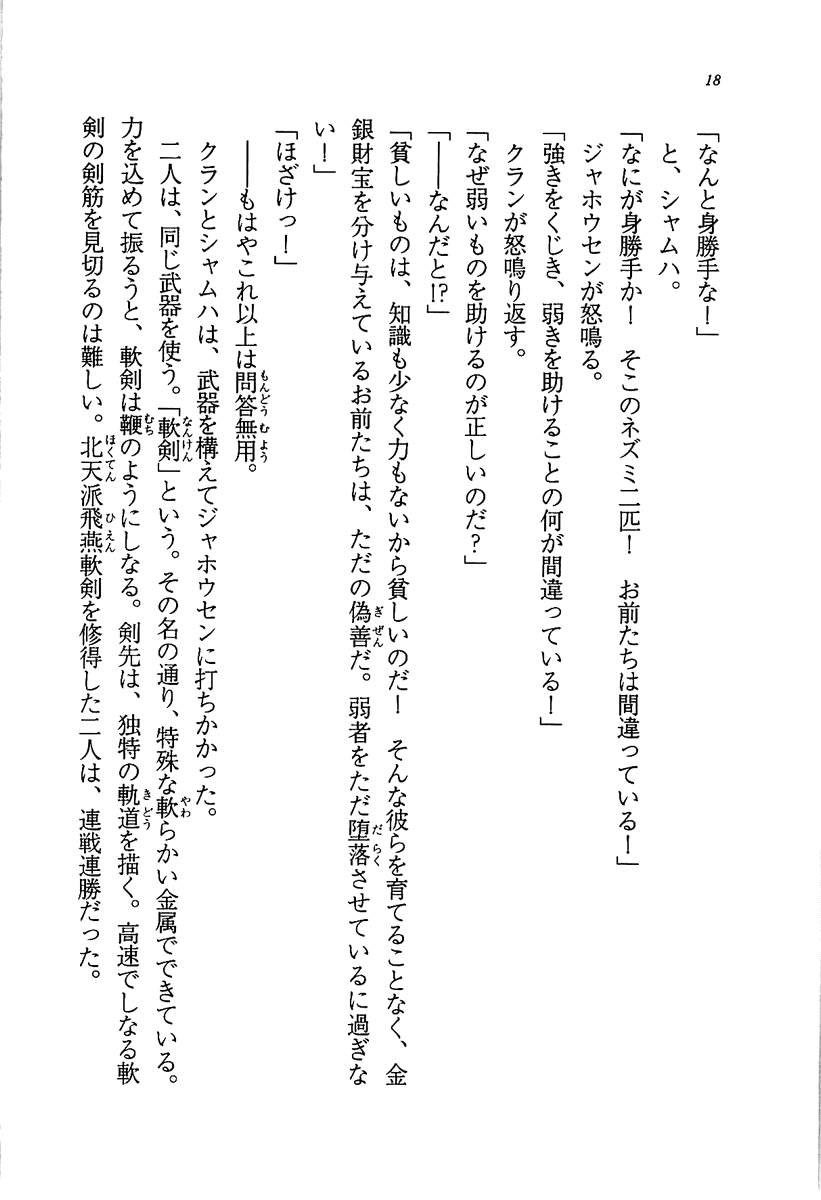 18
「なんと身勝手な！」
と、シャムハ。
「なにが身勝手か！　そこのネズミ二匹！　お前たちは間違っている！」
ジャホウセンが怒鳴る。
「強きをくじき、弱きを助けることの何が間違っている！」
クランが怒鳴り返す。
「なぜ弱いものを助けるのが正しいのだ？」
「――なんだと!?」
「貧しいものは、知識も少なく力もないから貧しいのだ！　そんな彼らを育てることなく、金
銀財宝を分け与えているお前たちは、ただの偽善だ。弱者をただ堕落させているに過ぎな
い！」
「ほざけっ！」
――もはやこれ以上は問答無用。
クランとシャムハは、武器を構えてジャホウセンに打ちかかった。
二人は、同じ武器を使う。「軟剣」という。その名の通り、特殊な軟らかい金属でできている。
力を込めて振るうと、軟剣は鞭のようにしなる。剣先は、独特の軌道を描く。高速でしなる軟
剣の剣筋を見切るのは難しい。北天派飛燕軟剣を修得した二人は、連戦連勝だった。